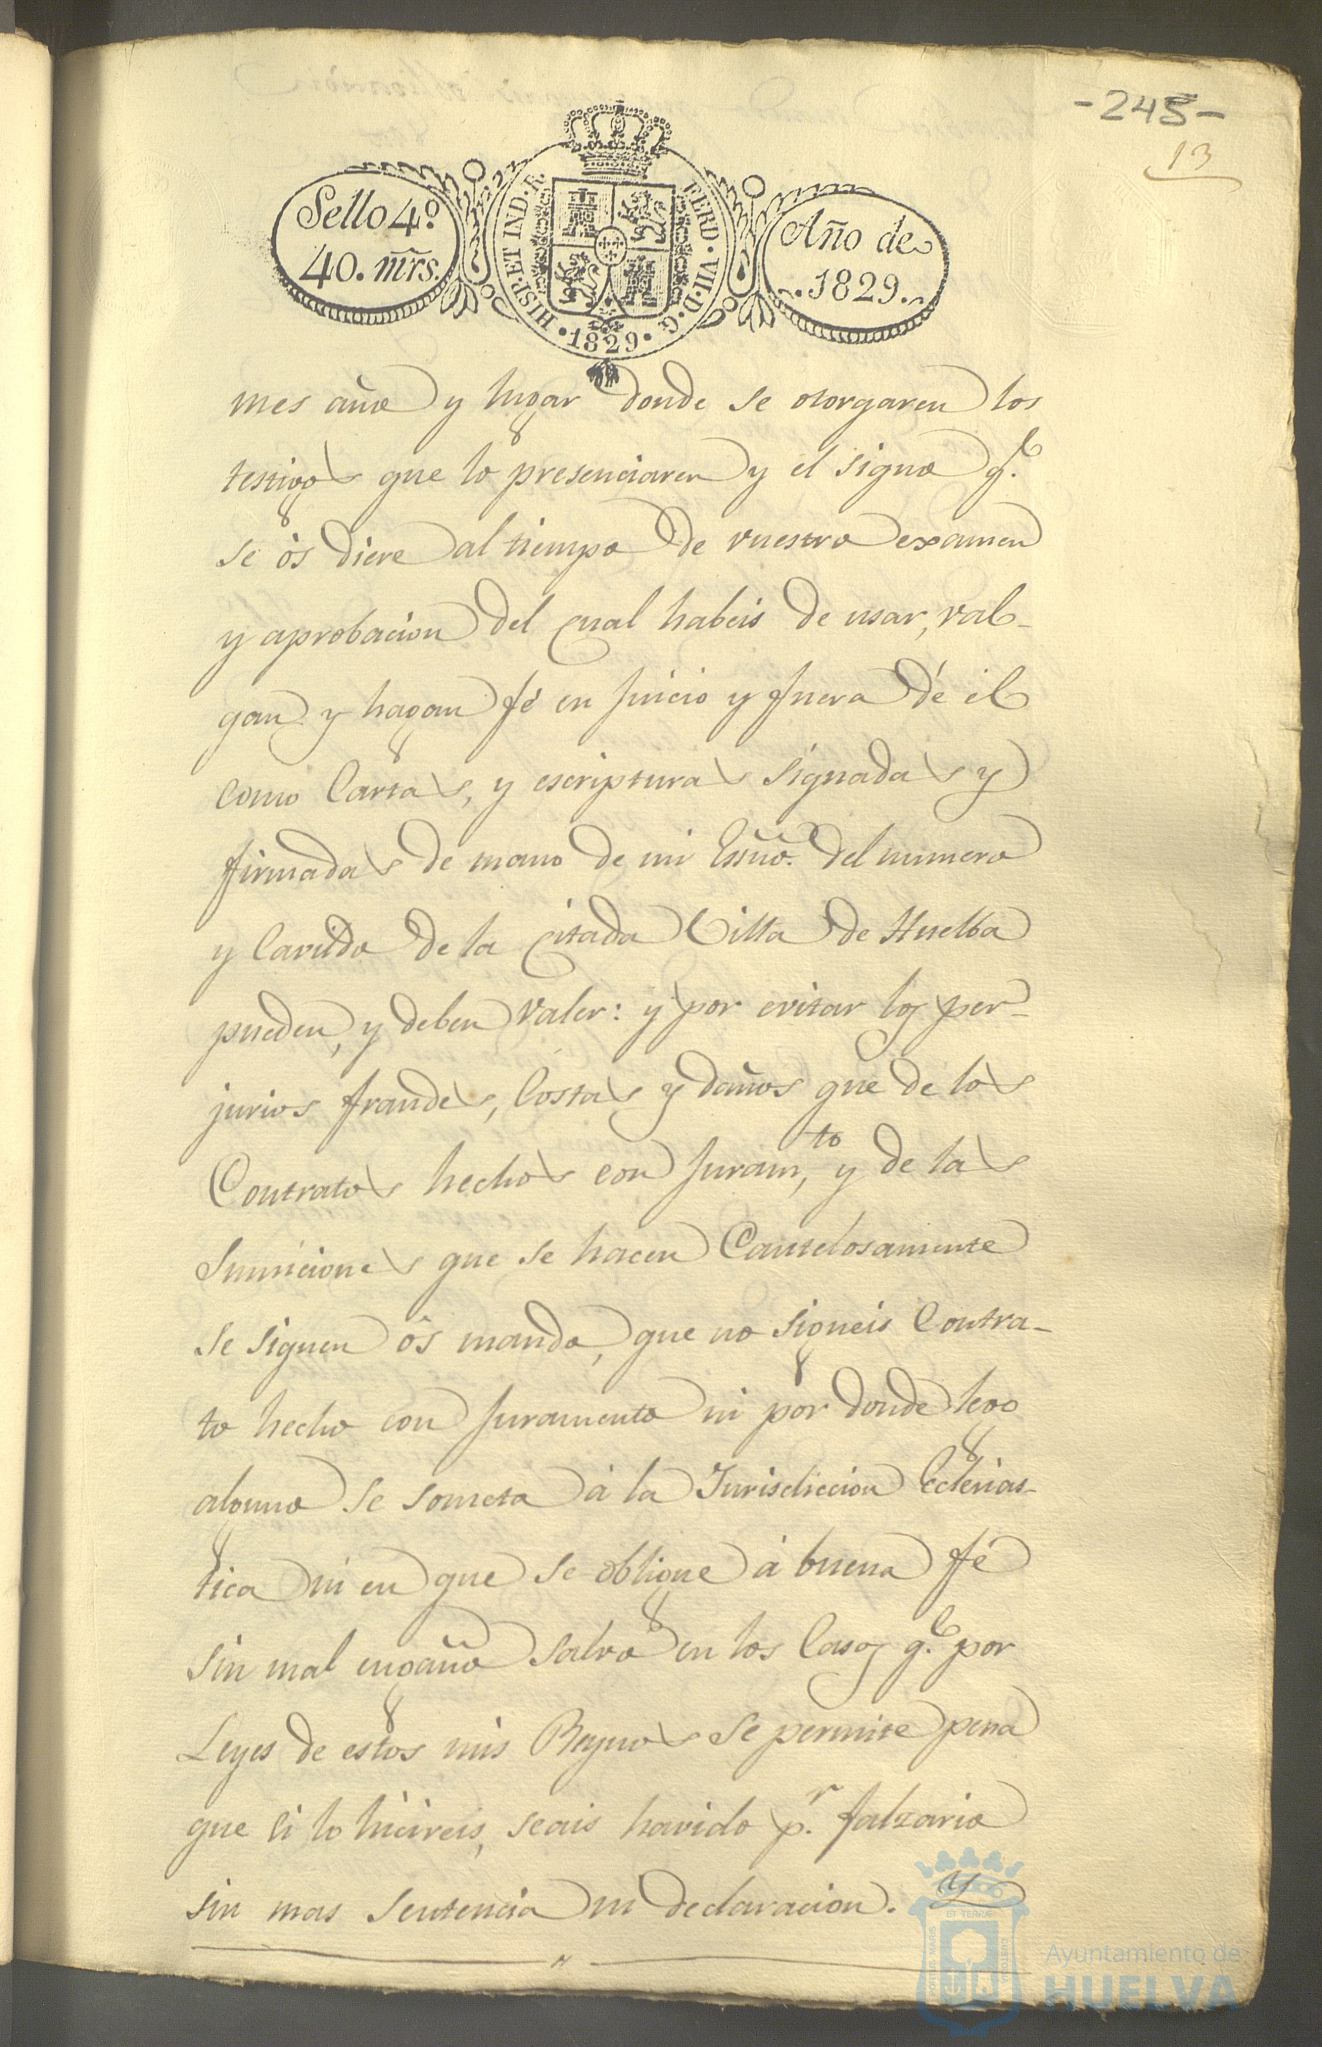 -245-
13
Sello 4º
40. mrs.
HISP. ET IND. R.
FERD. VII. D. G.
• 1829 •
Año de
. 1829 .
mes año y lugar donde se otorgaren los
testigos que lo presenciaren y el signo q.e
se ós diere al tiempo de vuestro examen
y aprobacion del cual habeis de usar, val-
gan y hagan fé en juicio y fuera dé él
como Cartas, y escripturas signadas y
firmadas de mano de mi Essño. del numero
y Cavildo de la Citada Villa de Huelba
pueden, y deben valer: y por evitar los per-
jurios fraudes, Costas y daños que de los
Contratos hechos con juram,to y de las
Sumiciones que se hacen Cautelosamente
se siguen ós mando, que no signeis Contra-
to hecho con juramento ni por donde lego
alguno se someta á la Jurisdiccion Eclesias-
tica ni en que se obligue á buena fé
sin mal engaño salvo en los Casos q.e por
Leyes de estos mis Reynos se permite pena
que si lo hicireis, seais havido p.r falzario
sin mas sentencia ni declaracion. Y
Ayuntamiento de
HUELVA